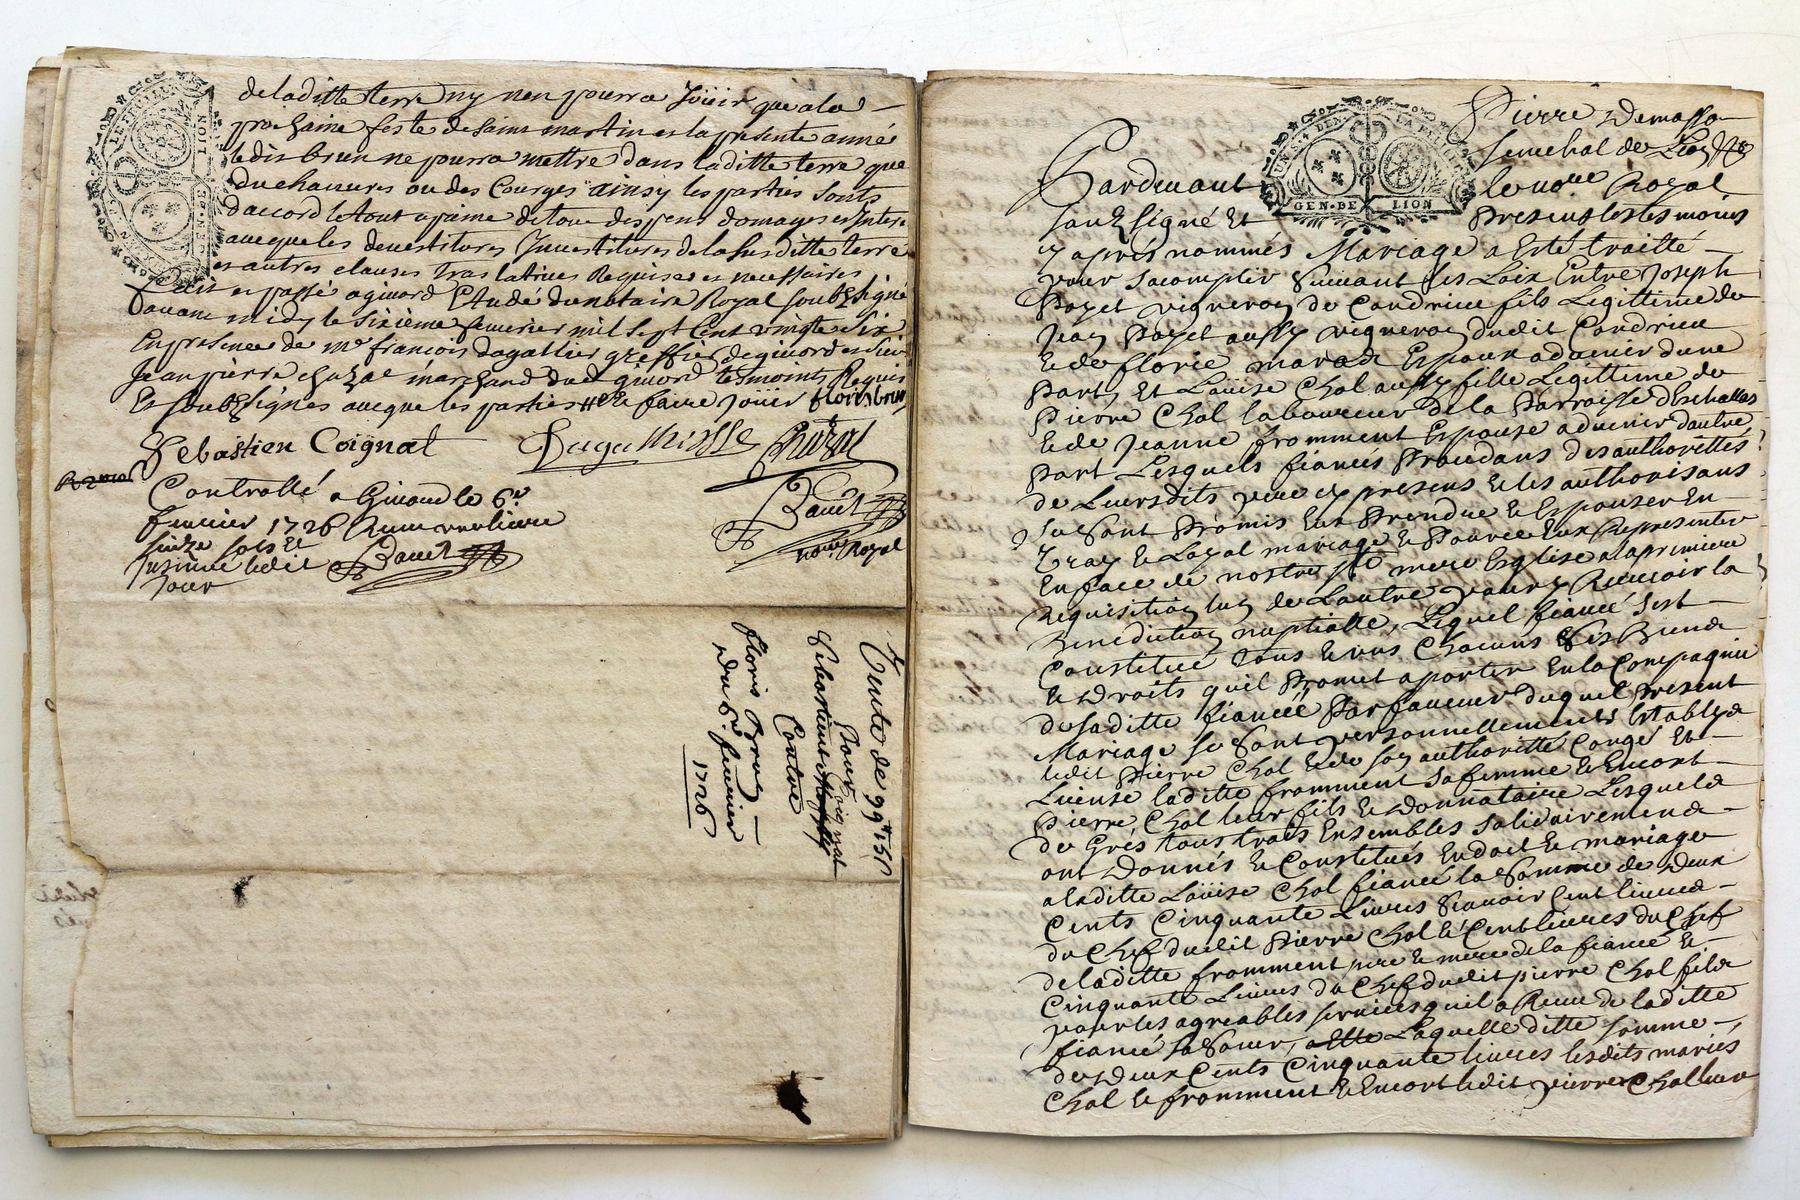 de laditte terre ny nen pourra Joüir que a la
prochaine feste de saint martin en la presente année
ledit brun ne pourra mettre dans laditte terre que
du chanvres ou des Courges ainsy les parties sont
daccord le tout a peine de tous despens domages et Inter.
avecque les devestitures Jnvestitures de la susditte terre
et autres clauses translatives Requises et necessaires
fait et passé a givord Etude du notaire Royal soubzsigné
avant midy le sixième fevrier mil sept Cent vingte six
En presence de me françois dagallier greffier de givord et sieur
Jean pierre chazal marchand dud givord tesmoints Requis
Et soubzsignés avecque les parties faire joüir floris brun
Sebastien Coignat
Chazal
Controllé a Givord le 6e
fevrier 1726 Receu une livre
seize sols et
Insinué ledit
Jour
no.re Royal
Vente de 99tt 15s
Pour
Sebastien Coignat
Contre
floris Brun
Du 6e fevrier
1726
LION
GEN · DE
Pierre Demassa
senechal de Lion
Pardevant
le no.re Royal
soubzsigné Et
Presents les tesmoins
cy aprés nommés Mariage a Esté traitté
pour sacomplir Suivant les Loix Entre Joseph
Pozet vigneron de Condrieu fils Legittime de
Jean Pozet aussy vigneron dudit Condrieu
et de florie Espoux advenir dune
Part, Et Loüise Chol aussy fille Legittime de
Pierre Chol laboureur de la Parroisse deschallas
et de Jeanne fromment Espouse advenir dautre
Part Lesquels fiancés Procedans des authorittés
de Leursdits pere cy presens et les authorisans
se sont Promis Prendre et Espouser En
Vray et Loyal mariage et Pource Eux Representer
En face de nostre ste mere Esglise a la premiere
Requisition lun de Lautre pour y Recevoir la
Benediction nuptialle, Lequel fiancé sest
Constitué tous et uns Chacuns ses Biens
et Droits quil Promet aporter En la Compagnie
de saditte fiancée Par faveur duquel Present
Mariage se sont personnellement Establys
ledit Pierre Chol et de son authoritté Congé Et
License laditte fromment sa femme et Encort
Pierre Chol leur fils et Donnataire Lesquels
de Gres tous trois Ensembles solidairement
ont Donnés et Constitués En dot et mariage
a laditte Loüise Chol fiancé la Somme de Deux
Cents Cinquante Livres Sçavoir Cent livres
du Chef dudit Pierre Chol et Cent livres du Chef
de laditte fromment pere et mere de la fiancé et
Cinquante Livres du Chef dudit pierre Chol fils
pour les agreables services quil a Receu de laditte
fiancé sa Soeur, Laquelle ditte somme
de Deux Cents Cinquante livres lesdits mariés
Chol et fromment et Encort ledit pierre Chol leur
GEN · DE LION